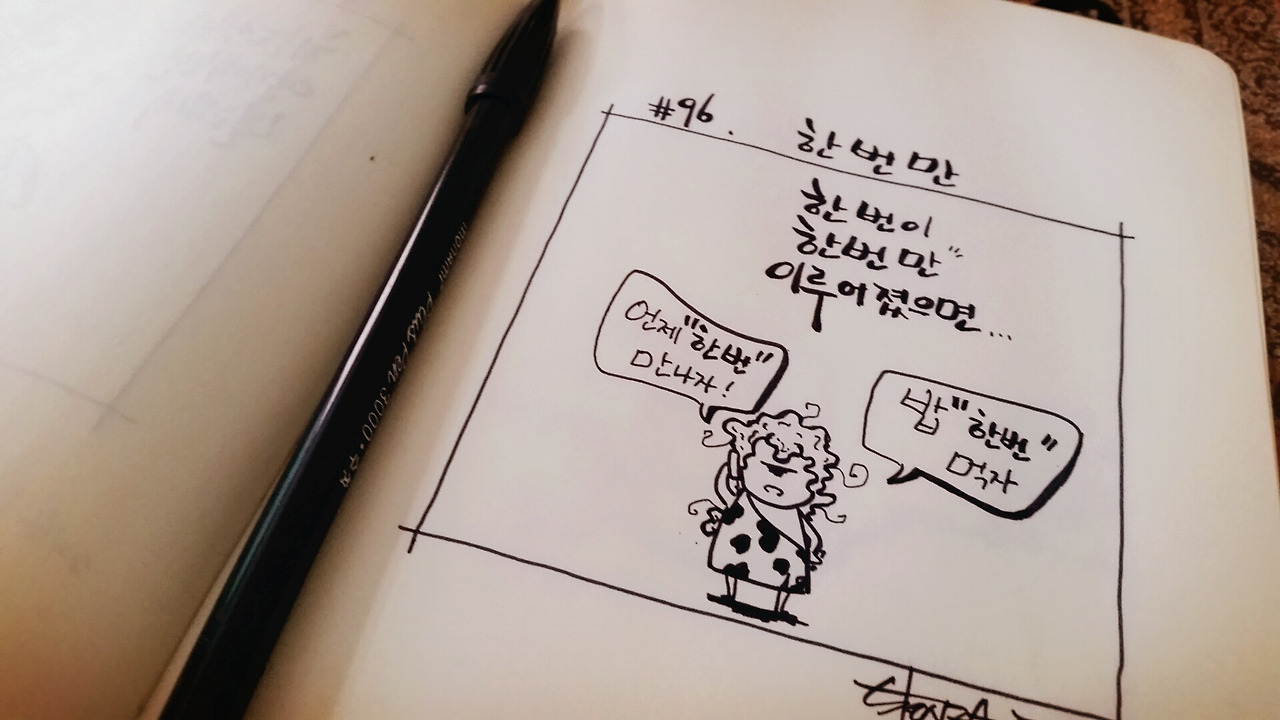 #96. 한번만
한번이
한번만"
이루어졌으면...
언제"한번"
만나자!
밥"한번"
먹자
monami Plus Pen 3000